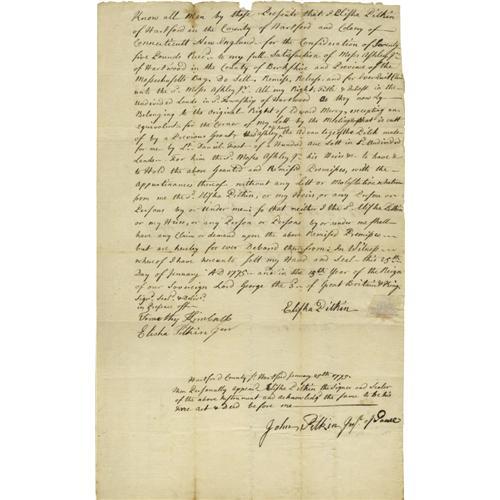 Know all Men by those Presents that I Elisha Pitkin
of Hartford in the County of Hartford and Colony of
Connecticutt New England for the Consideration of Seventy
five Pounds Recd to my full Satisfaction of Moses Ashley Jr
of Hartwood in the County of Berkshire and Province of the
Massachusetts Bay Do Sell Remise Release and for Ever Quit Claim
unto the sd Moses Ashley Jr All my Right Title & Interest in the
Undivided Lands in sd Township of Hartwood as they now Ly
Belonging to the original Right of Edward Mercy excepting an
equivalent for the Corner of my Lott by the Meeting that is cutt
off by a Previous Grant the Advantages the Pitch made
for me by Lt Daniel East of a Hundred acre Lott in sd Undivided
Lands Hor him the sd Moses Ashley Jr his Heirs to have &
to Hold the above Granted and Remised Premisses, with the
appurtinances thereof without any Lett or Molestation
from me the sd Elisha Pitkin, or my Heirs or any Person or
Persons by or Under me so that neither I the sd Elisha Pitkin
or my Heirs, or any Person or Persons by or under me shall
have any Claim or demand upon the above Remised Premisses
but are hereby for ever Debared therefrom. In Witness
whereof I have hereunto sett my Hand and Seal this 25th
Day of January AD 1775 and in the 15th Year of the Reign
of our Sovereign Lord George the 3rd of Great Britain & King
Signd Seald & Deliverd
in Presence off
Elisha Pitkin
Timothy Kimball
Elisha Pitkin Junr
Hartford County ss Hartford January 25th 1775
then Personally appeard Elisha Pitkin the Signer and Sealer
of the above Instrument and acknowledg the same to be his
free act & Deed before me
John Pitkin Just of Peace